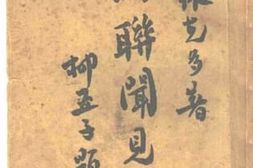 克多著
聯聞見
柳亞子題